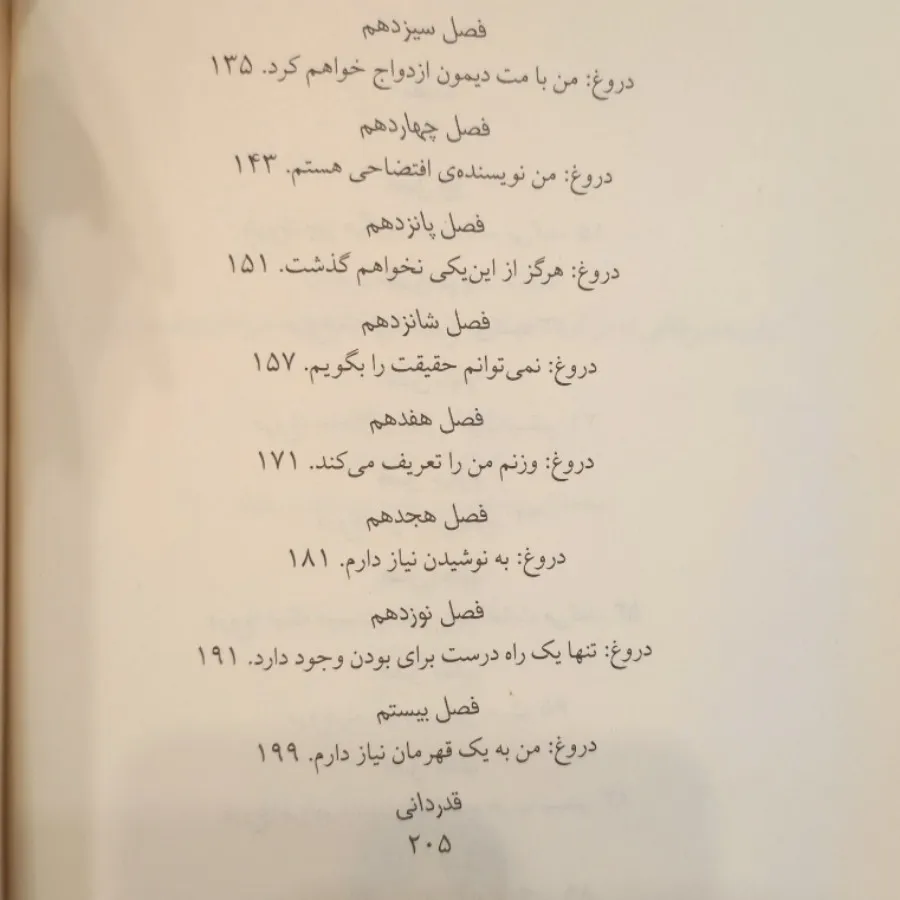 فصل سیزدهم
دروغ: من با مت دیمون ازدواج خواهم کرد. ۱۳۵
فصل چهاردهم
دروغ: من نویسنده‌ی افتضاحی هستم. ۱۴۳
فصل پانزدهم
دروغ: هرگز از این‌یکی نخواهم گذشت. ۱۵۱
فصل شانزدهم
دروغ: نمی‌توانم حقیقت را بگویم. ۱۵۷
فصل هفدهم
دروغ: وزنم من را تعریف می‌کند. ۱۷۱
فصل هجدهم
دروغ: به نوشیدن نیاز دارم. ۱۸۱
فصل نوزدهم
دروغ: تنها یک راه درست برای بودن وجود دارد. ۱۹۱
فصل بیستم
دروغ: من به یک قهرمان نیاز دارم. ۱۹۹
قدردانی
۲۰۵